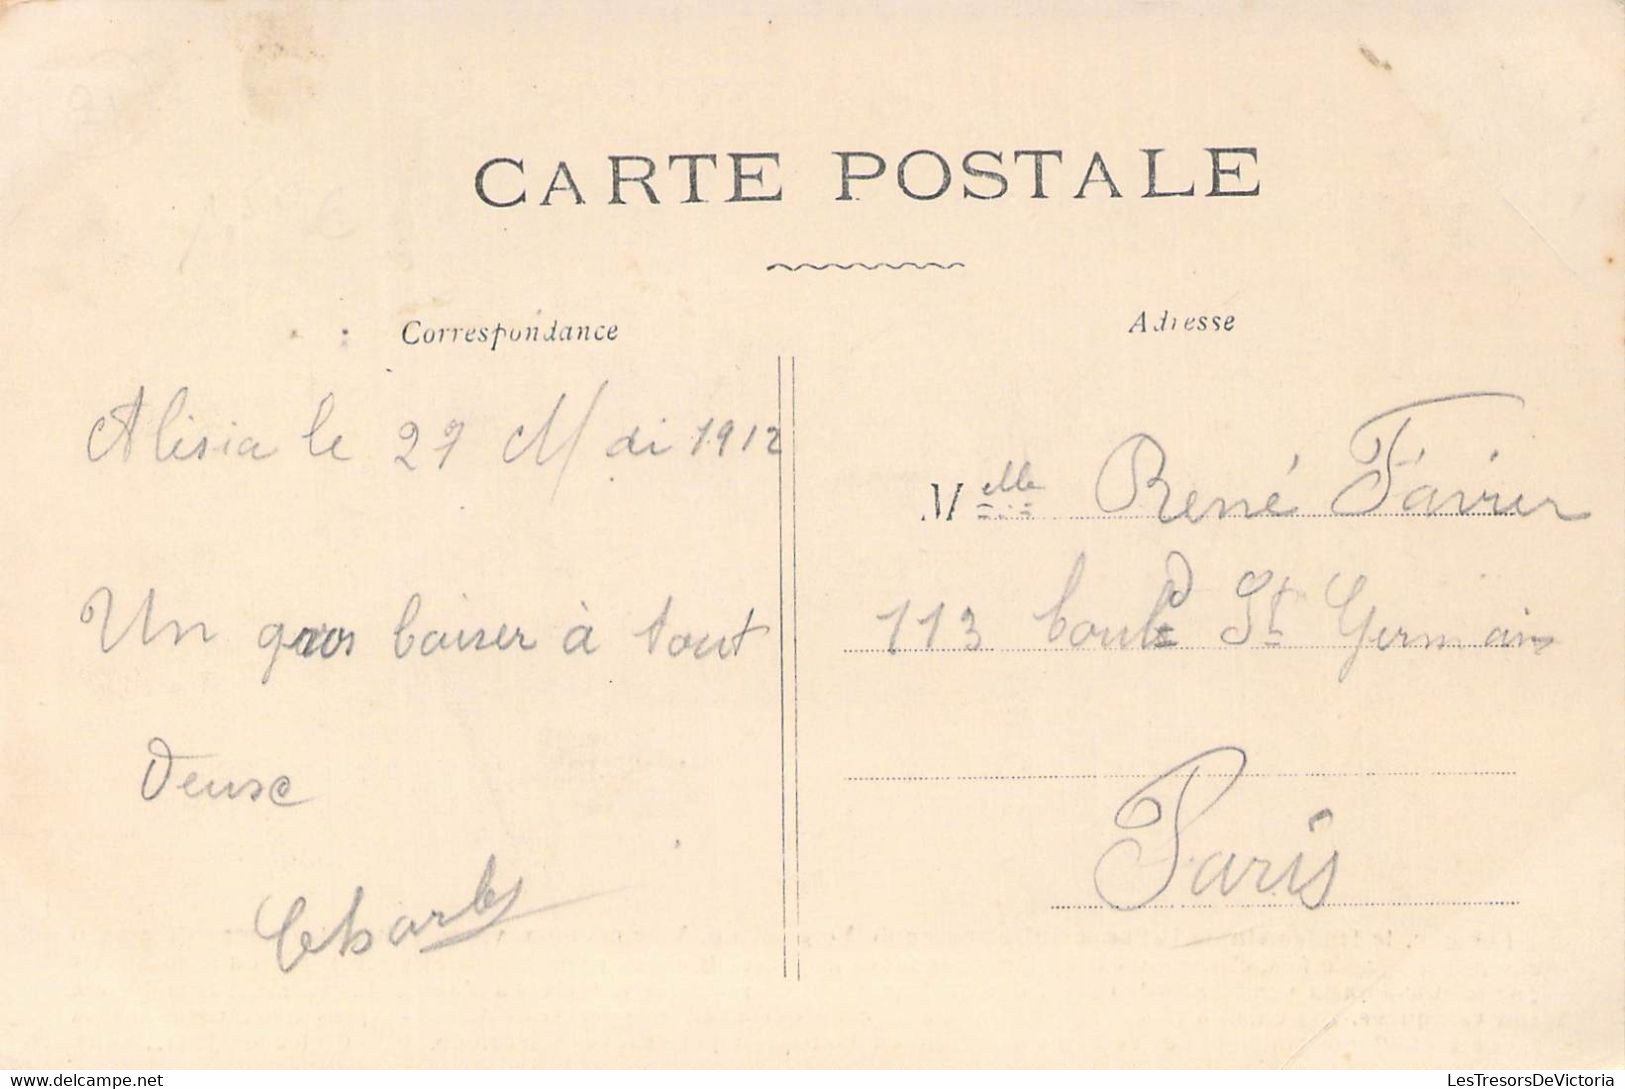 CARTE POSTALE
Correspondance
Adresse
Alisia le 27 Mai 1912
Un gros baiser à tout
deuse
Charles
Melle René Favrer
113 boul d St Germain
Paris
LesTresorsDeVictoria